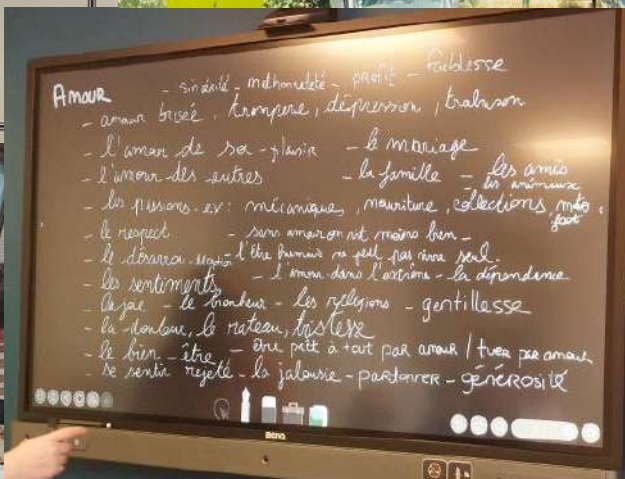 AMOUR - sincérité - malhonnêteté - profit - faiblesse
- amour brisée, tromperie, dépression, trahison
- l'amour de soi - plaisir - le mariage
- l'amour des autres - la famille - les amis
les animaux
- les passions. ex: mécaniques, nourriture, collections, moto
foot
- le respect - sans amour on vit moins bien -
- le désarroi - - l'être humain ne peut pas vivre seul.
- les sentiments, - l'amour dans l'extrême - la dépendance
- la joie - le bonheur - les religions - gentillesse
- la douleur, le rateau, tristesse
- le bien-être - être prêt à tout par amour / tuer par amour
- se sentir rejeté - la jalousie - pardonner - générosité
BenQ